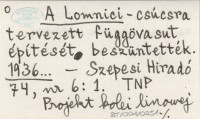 A Lomnici-csúcsra
tervezett függővasut
építését beszüntették.
1936... - Szepesi Hiradó
74, nr 6: 1. TNP
Projekt kolei linowej